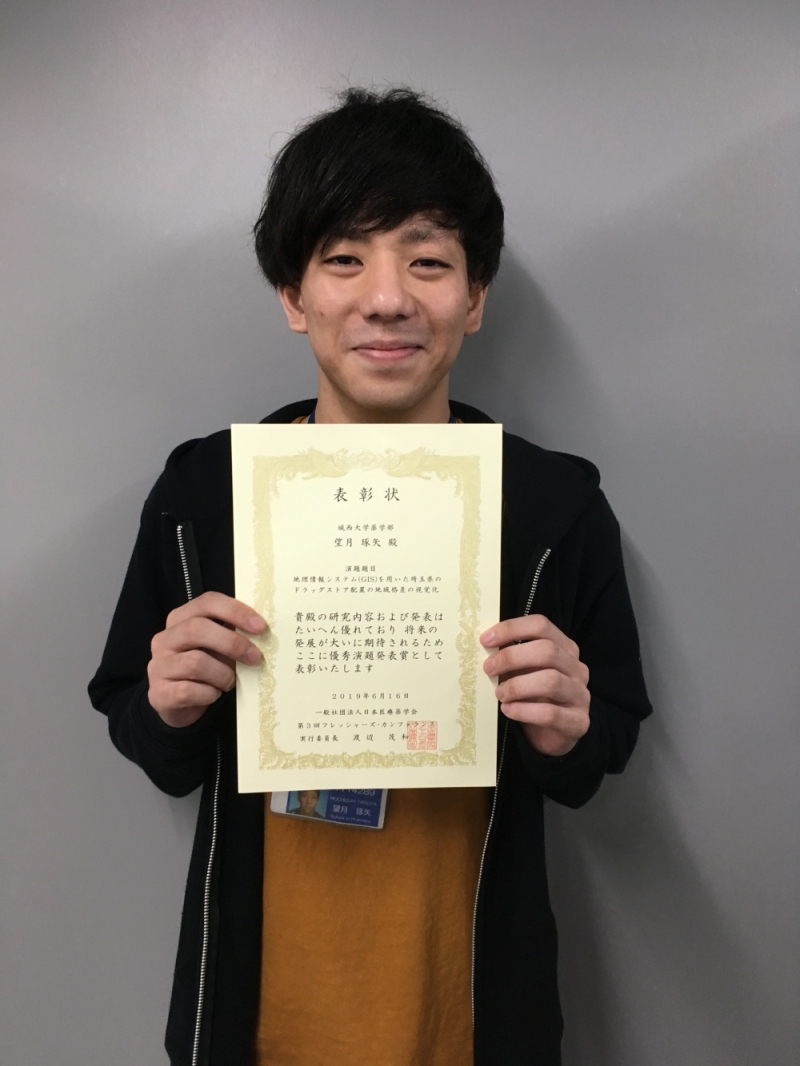 表彰状
城西大学薬学部
望月 琢矢 殿
演題題目
地理情報システム(GIS)を用いた埼玉県の
ドラッグストア配置の地域格差の視覚化
貴殿の研究内容および発表は
たいへん優れており 将来の
発展が大いに期待されるため
ここに優秀演題発表賞として
表彰いたします
2019年6月16日
一般社団法人日本医療薬学会
第3回フレッシャーズ・カンファランス
実行委員長 渡辺 茂和
望月 琢矢